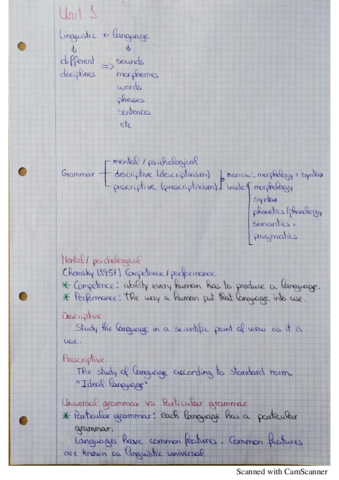 Unit 1
Linguistic → language
different => sounds
disciplines morphemes
words
phrases
sentences
etc
mental / psichological
Grammar descriptive (descriptivism) narrow: morphology + syntax
prescriptive (prescriptivism) wide morphology
syntax
phonetics / phonology
semantics
pragmatics
Mental / psichological
Chomsky (1957) Competence / performance
* Competence: ability every human has to produce a language.
* Performance: The way a human put that language into use.
Descriptive
Study the language in a scientific point of view as it is
use.
Prescriptive
The study of language according to standard norm.
"Ideal language"
Universal grammar vs Particular grammar
* Particular grammar: each language has a particular
grammar.
Languages have common features. Common features
are known as linguistic universal.
Scanned with CamScanner